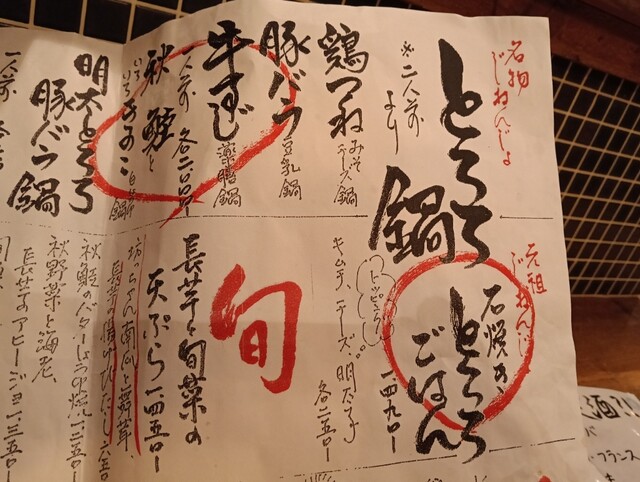 名物
じねんじょ
とろろ鍋
※二人前より
鶏つくね みそチーズ鍋
豚バラ 豆乳鍋
牛すじ 薬膳鍋
秋鮭と
いろいろきのこ
明太とろろ
豚バラ鍋
一人前
元祖
じねんじょ
石焼き、
とろろ
ごはん
一四九〇ー
トッピング
キムチ、チーズ、明太子
各二五〇ー
旬
長芋と旬菜の
天ぷら 一四五〇ー
坊っちゃん南瓜と舞茸、
秋鮭のバターしょうゆ焼 一二五〇ー
秋野菜と海老、
長芋のアヒージョ 一三五〇ー
酒
フランス